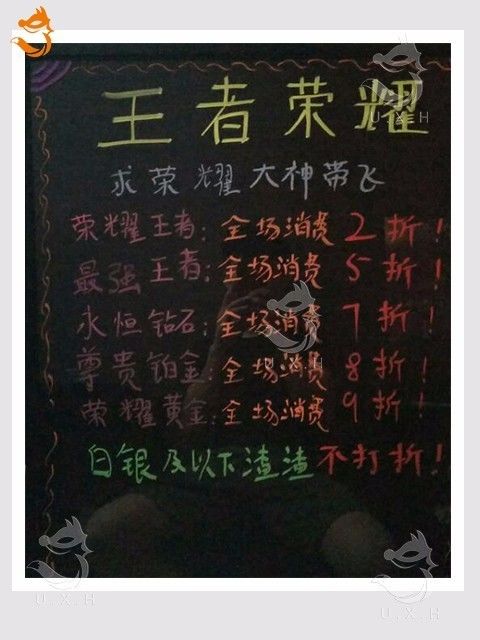 王者荣耀
求荣耀大神带飞
荣耀王者:全场消费2折!
最强王者:全场消费5折!
永恒钻石:全场消费7折!
尊贵铂金:全场消费8折!
荣耀黄金:全场消费9折!
白银及以下渣渣不打折!
U.X.H
U.X.H
U.X.H
U.X.H